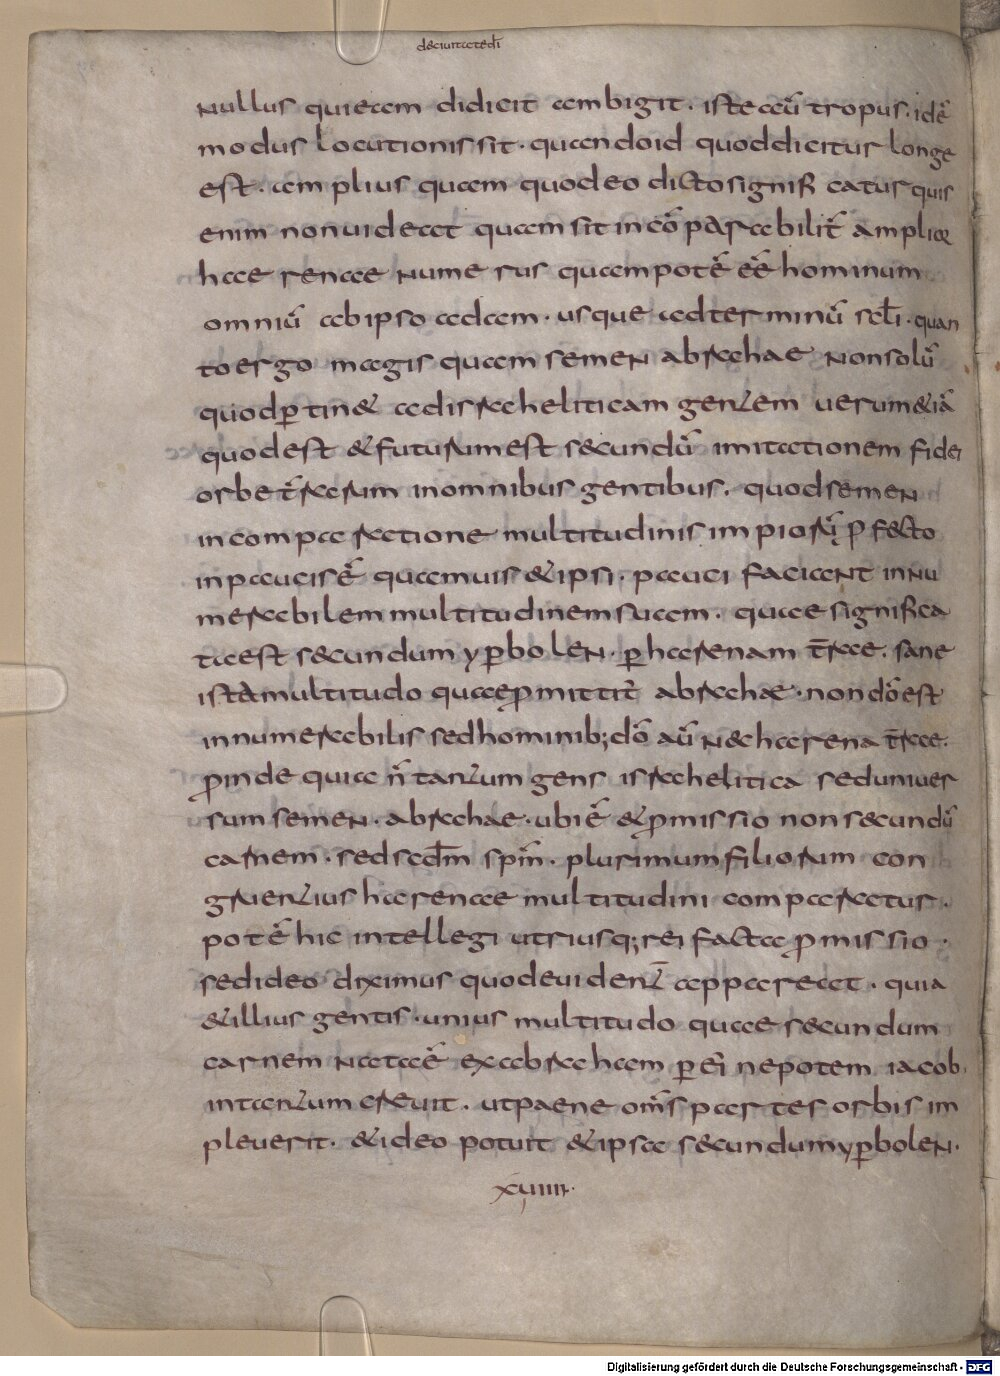 deciuitatedī
nullus qui eam didicit ambigit. iste aū tropus. idē
modus locutionis sit. quando id quod dicitur longe
est. amplius quam quod eo dicto significatur quis
enim non uideat quam sit incōparabilit̄ amplior
harenae numerus quam potē eē hominum
omniū ab ipso adam. usque ad terminū sc̄li. quan
to ergo magis quam semen abrahae non solū
quod ꝑtin& ad israheliticam gentem uerum &iā
quod est & futurum est s&cundū imitationem fidei
orbe t̄rarum in omnibus gentibus. quod semen
in comparatione multitudinis impiorū ꝓfecto
in paucis ē quamuis & ipsi. pauci faciant innu
merabilem multitudinem suam. quae significa
ta est s&cundum yꝑbolen. ꝑ harenam t̄rae. sane
ista multitudo quae ꝓmittit̄ abrahae. non dō est
innumerabilis sed hominib; dō aū n&c harena t̄rae.
ꝓinde quia n̄ tantum gens israhelitica sed uniuer
sum semen. abrahae. ubi ē & ꝓmissio non s&cundū
carnem. sed scdm̄ spm̄. plurimum filiorum con
gruentius harenae multitudini comparatur.
potē hic intellegi utriusq; rei facta ꝓmissio.
sed ideo diximus quod euident̄ appareat. quia
& illius gentis. unius multitudo quae s&cundum
carnem nata ē ex abraham ꝑ ei nepotem iacob.
in tantum creuit. ut paene om̄s partes orbis im
pleuerit. & ideo potuit & ipsa s&cundum yꝑbolen.
xuiiii.
Digitalisierung gefördert durch die Deutsche Forschungsgemeinschaft - DFG